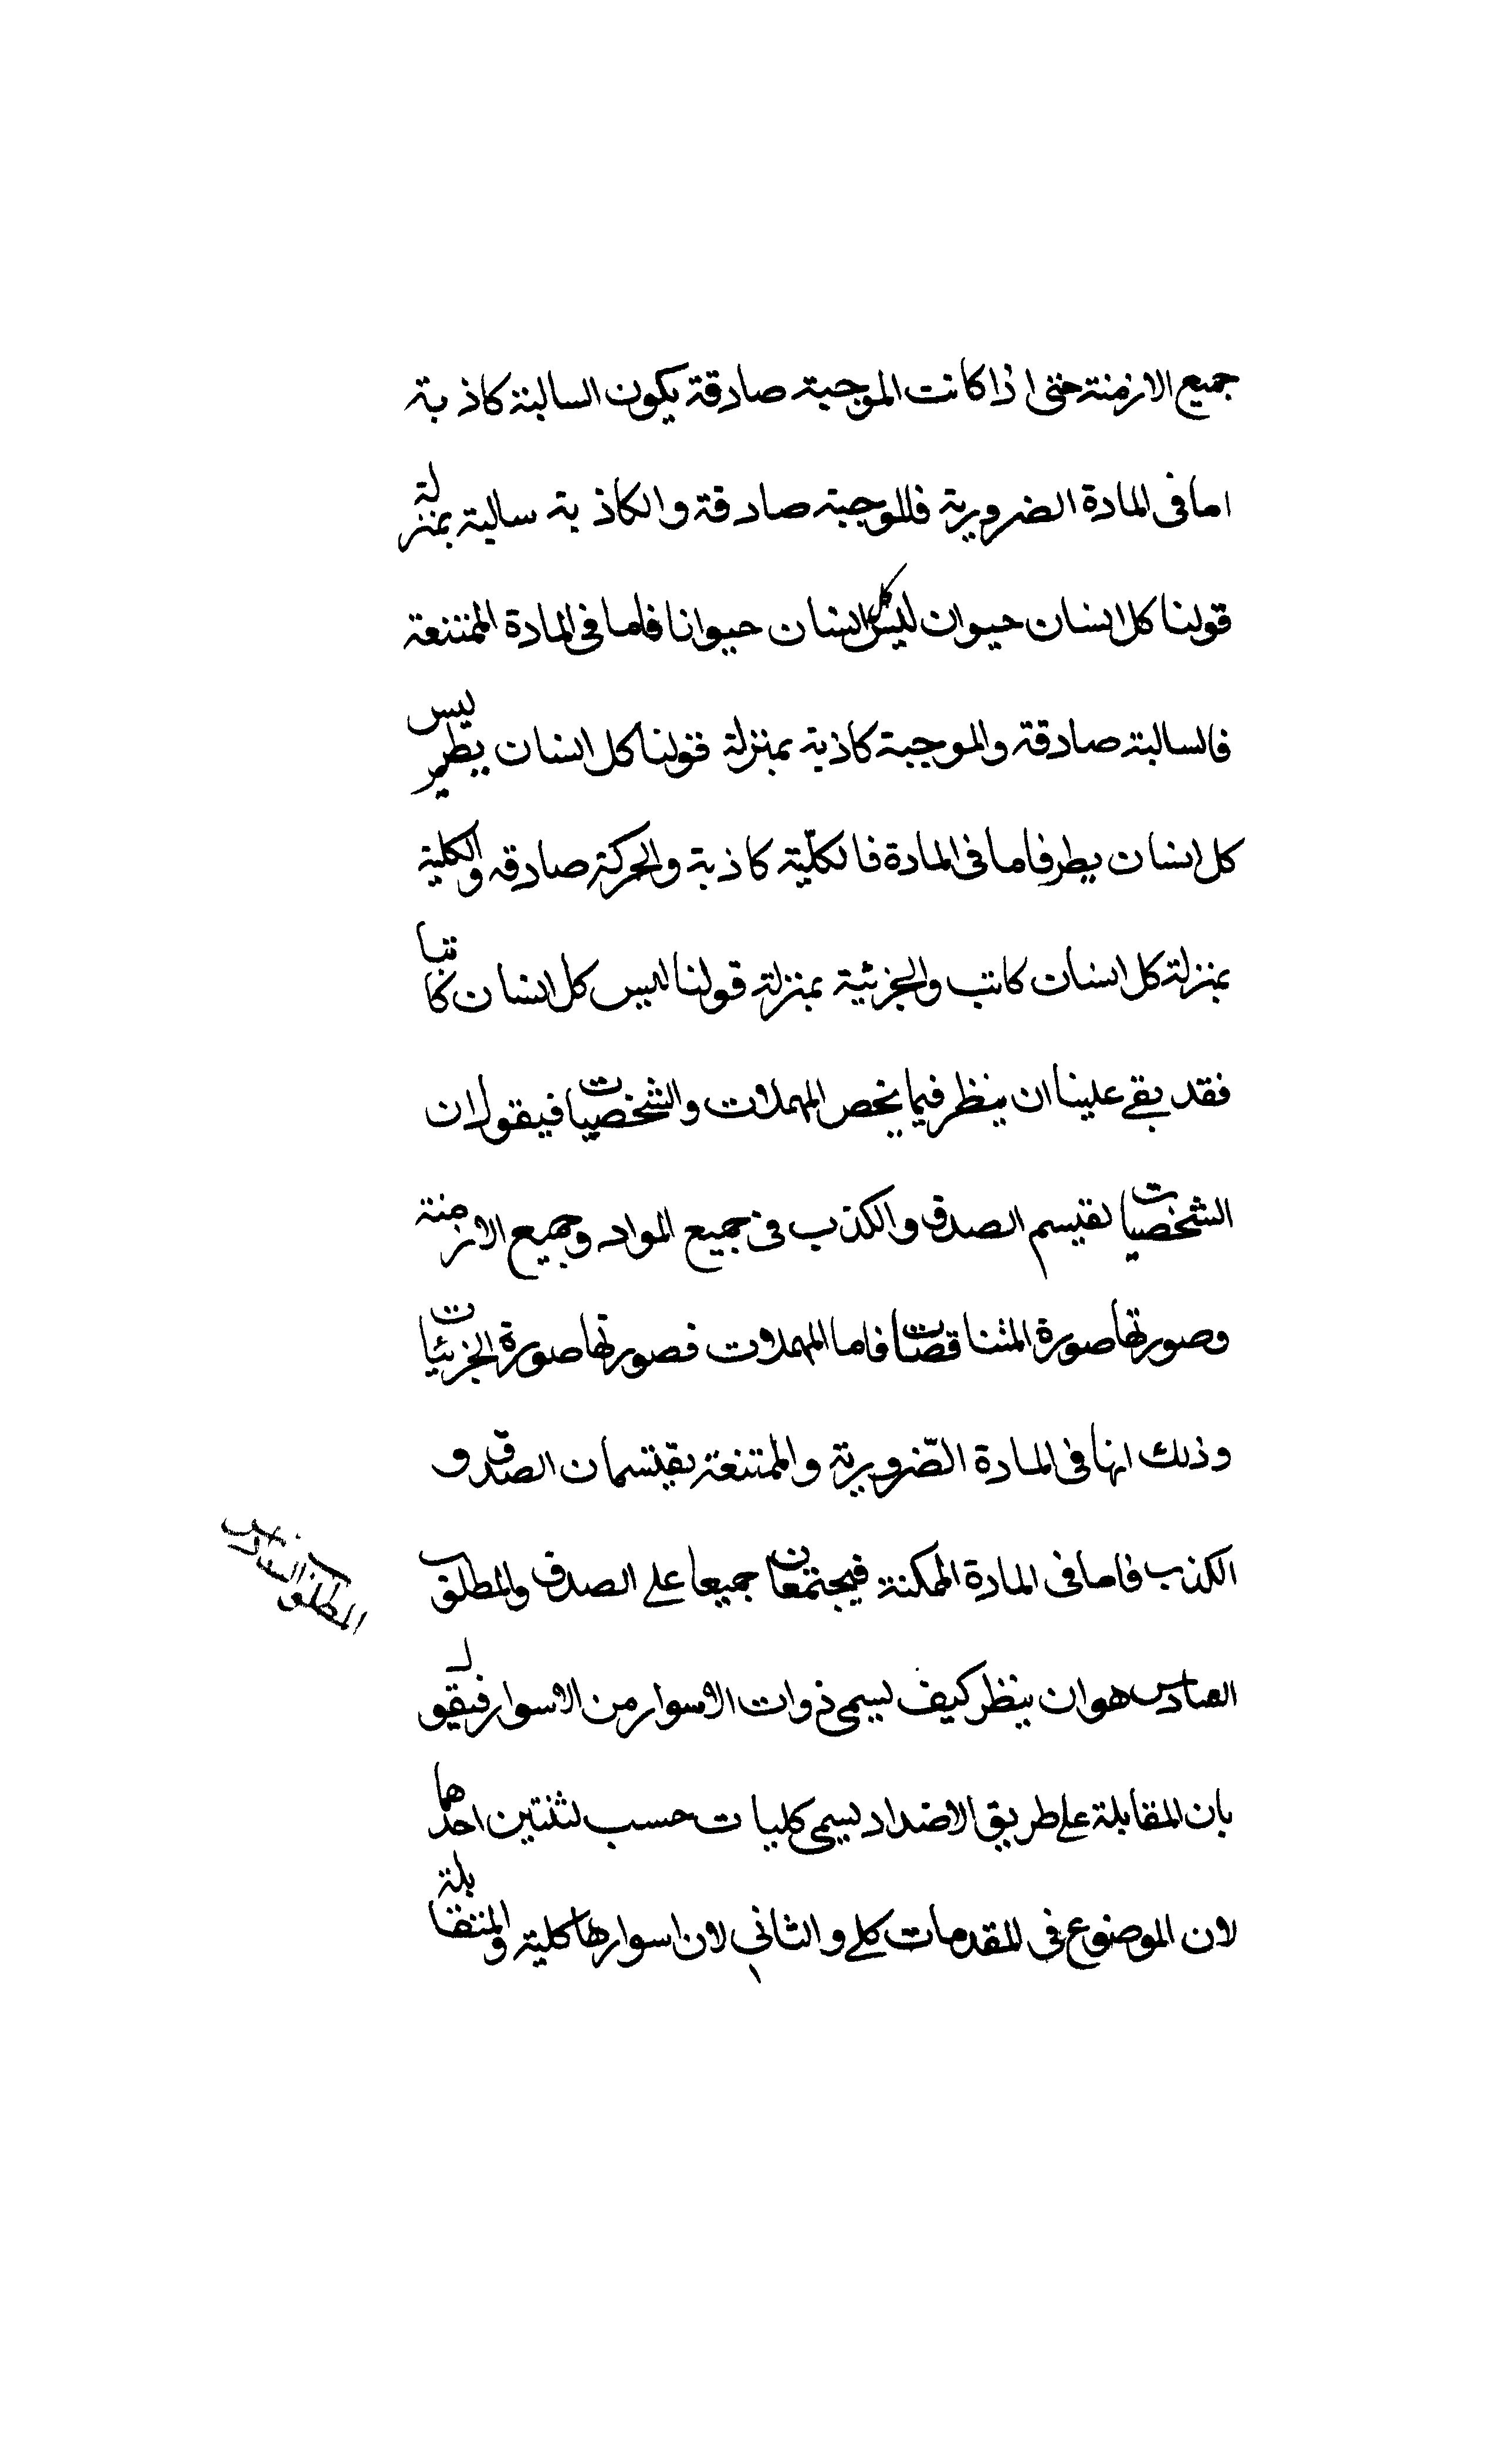 جميع الازمنة حتى اذا كانت الموجبة صادقة يكون السالبة كاذبة
اما فى المادة الضرورية فالموجبة صادقة والكاذبة سالبة بمنزلة
قولنا كل انسان حيوان ليس كل انسان حيوانا فاما فى المادة الممتنعة
فالسالبة صادقة والموجبة كاذبة بمنزلة قولنا كل انسان يطير ليس
كل انسان يطير فاما فى المادة فالكلّية كاذبة والحركة صادقه والكلية
بمنزلة كل انسان كاتب والجزئية بمنزلة قولنا ليس كل انسان كاتبا
فقد بقى علينا ان ينظر فيما يخص المهملات والشخصيات فيقول ان
الشخصيات لقيسم الصدق والكذب فى جميع المواد وجميع الازمنة
وصورتها صورة المتناقصات فاما المهملات فصورتها صورة الجزئيات
وذلك انها فى المادة الضّرورية والممتنعة يقتسمان الصدق و
الكذب فاما فى المادة الممكنة فيجتمعان جميعا على الصدق والمطلوب
الصادس هو ان ينظر كيف يسمى ذوات الاسوار من الاسوار فيقول
بان المقابلة على طريق الاضداد يسمى كليات حسب لثنتين احدهما
لان الموضوع فى المقدمات كلى والثانى لان اسوارها كلية والمتقابلة
المطلوب السادس